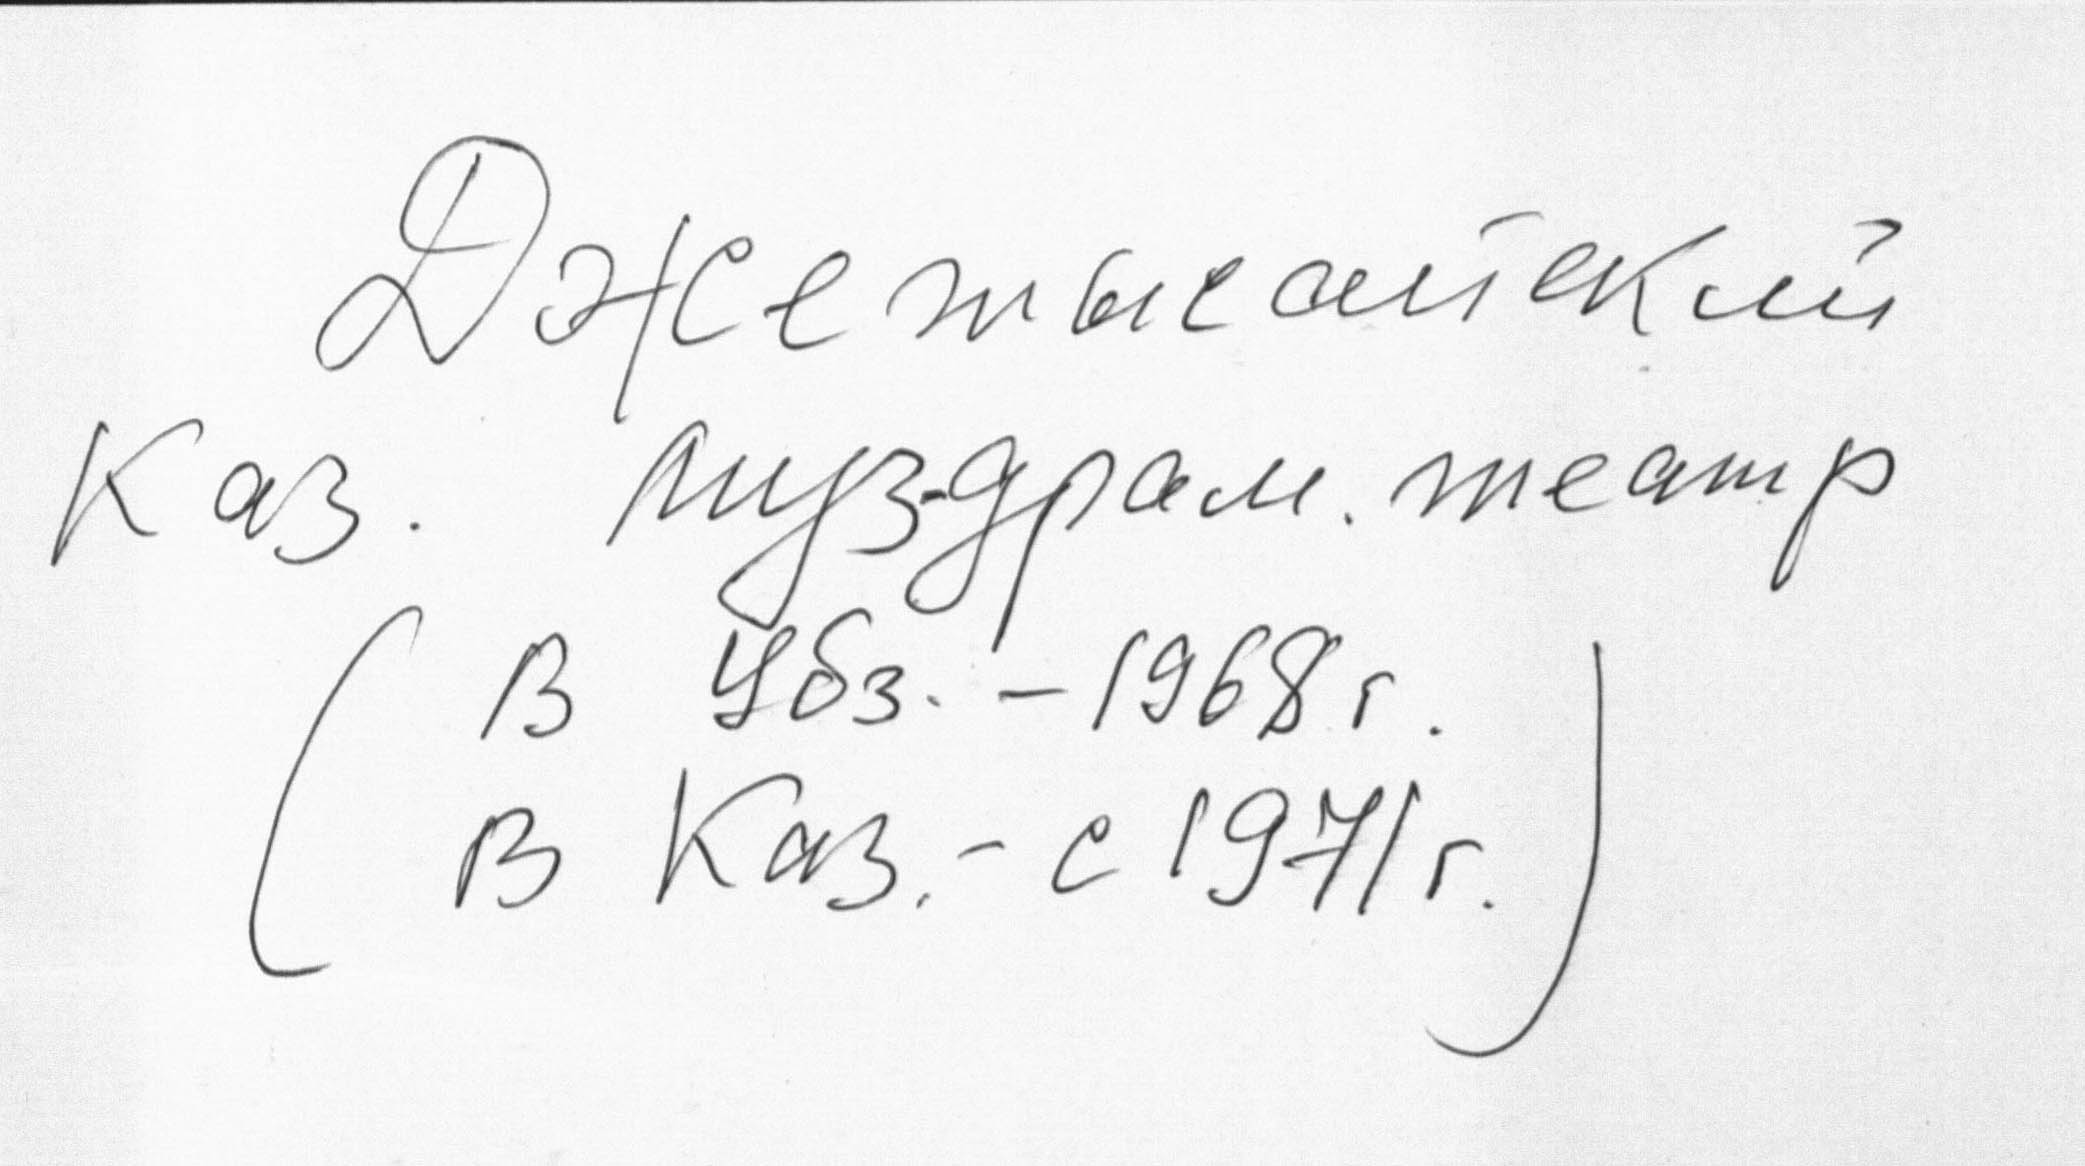 Джетысайский
Каз. муз-драм. театр
(В Убз. - 1968 г.
В Каз. - с 1971 г.)